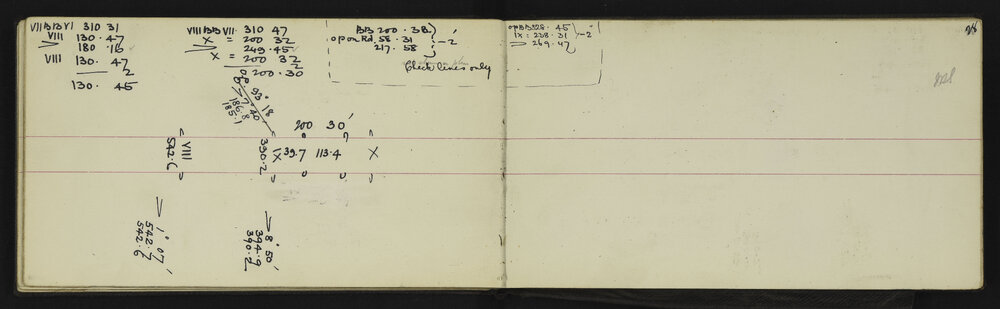 VIIIBBVI 310 31
VIII 130.47
180.16
VIII 130.47
2
130. 45
VIIIBBVII 310 47
X = 200 32
249.45
X = 200 32
2
200.30
BB 200.38
op on Rd. 58.31
217.58
-2'
Check lines only
op BB 128.45
IX = 238.31
269.47
-2
93° 18
7.40
186.8
185.1
200 30'
VIII
542.6
390.2
IX 39.7 113.4 X
1° 07'
542.7
542.6
8° 50'
394.9
390.2